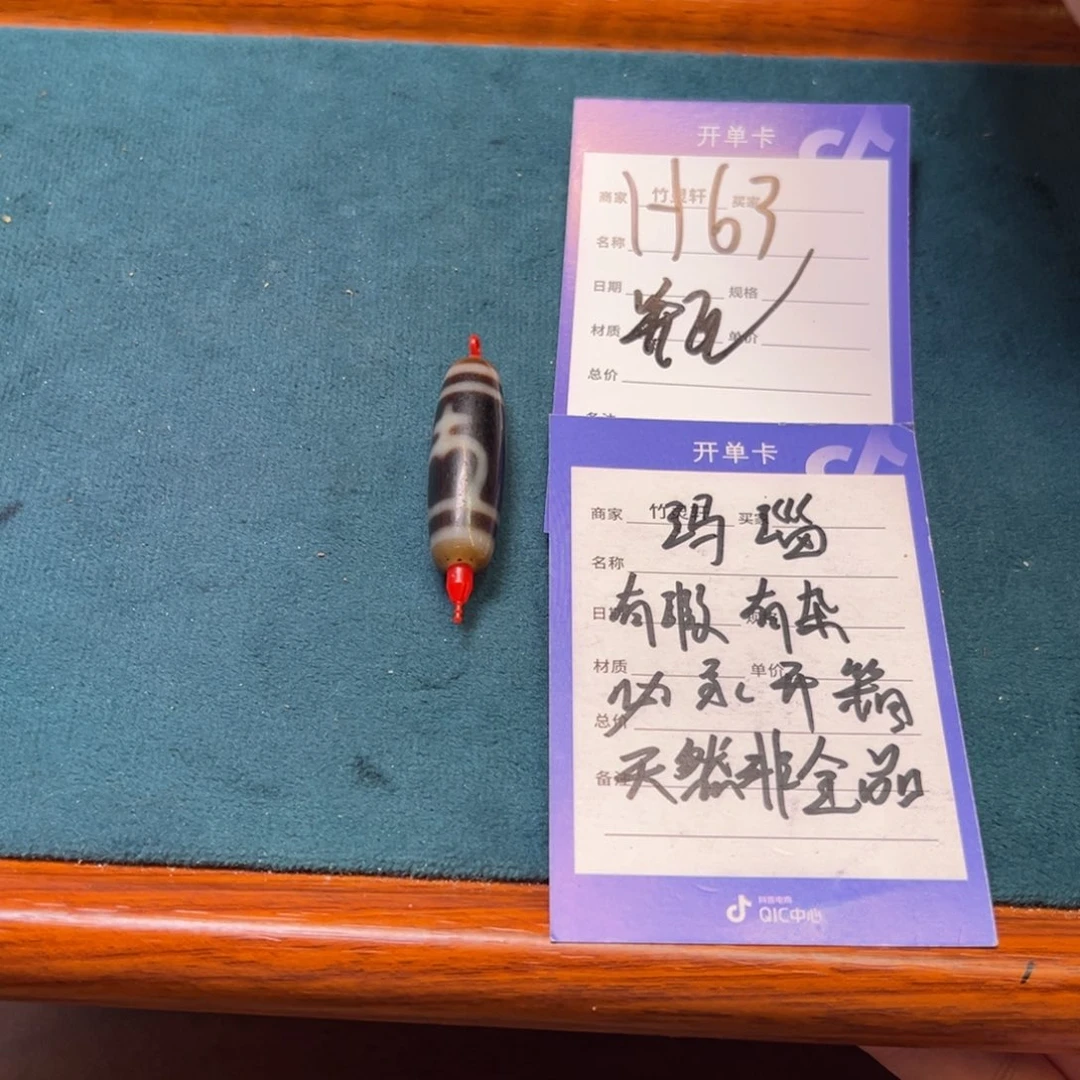 开单卡
商家 竹灵轩 买家
H63
名称
日期 规格
材质 单价
总价
开单卡
商家 竹灵轩 买家
玛瑙
名称
有瑕有杂
材质 单价
总价
天然非全品
备注
抖音电商
QIC中心